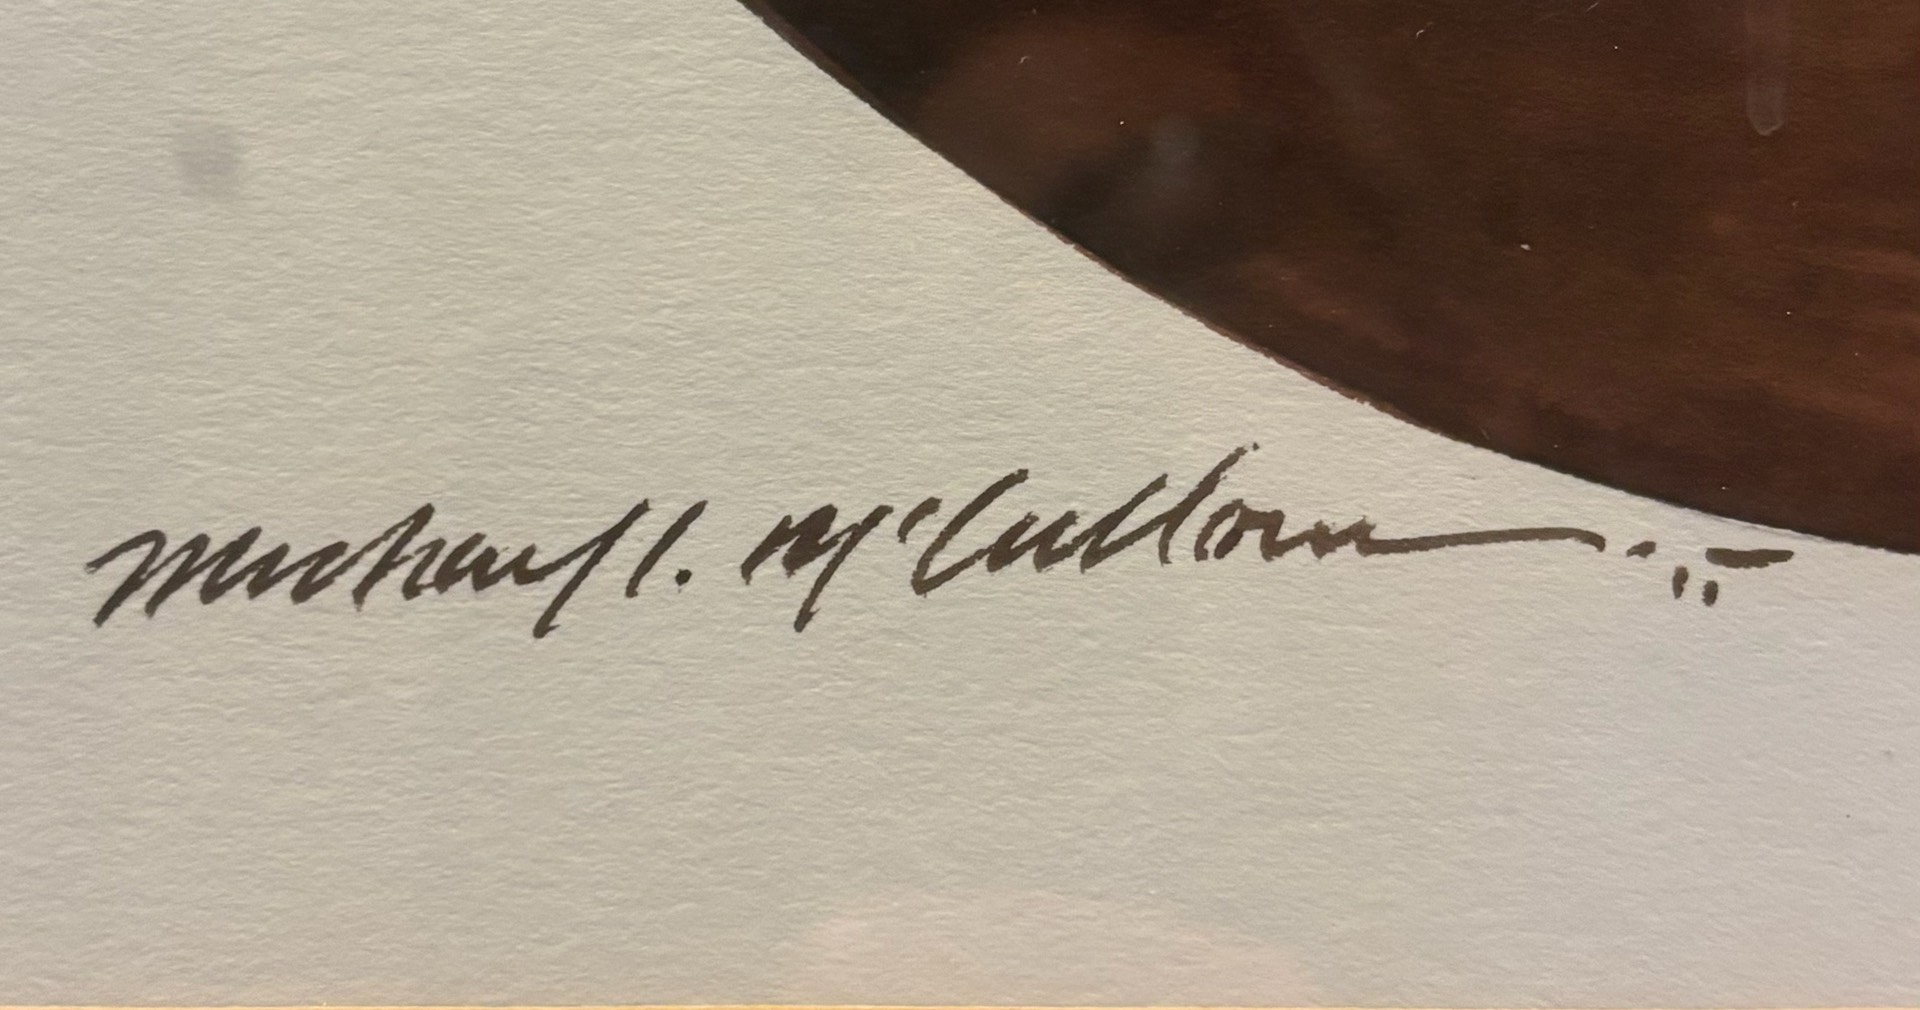 Michael J. McCullom